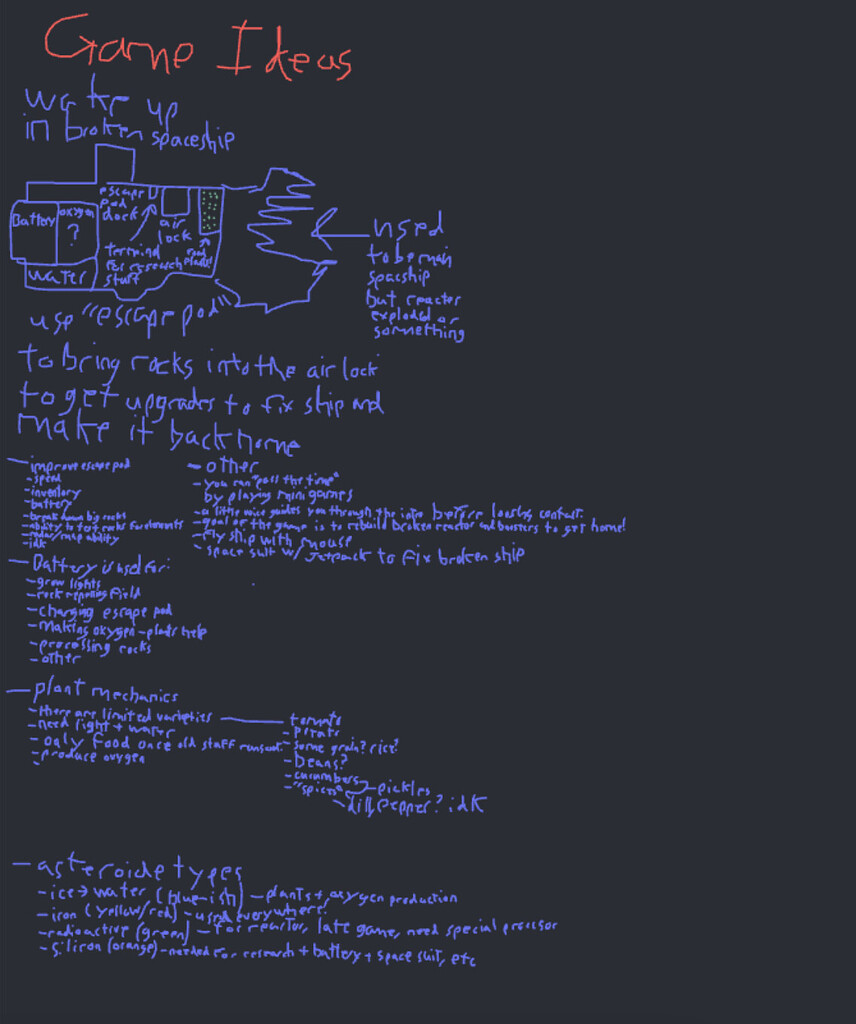 Game Ideas
wake up
in broken spaceship
escape
pod
dock
Battery
oxygen
?
air
lock
terminal
for research
stuff
food
plants!
water
used
to be main
spacship
but reactor
exploded or
somnething
use "escape pod"
to bring rocks into the air lock
to get upgrades to fix ship and
make it back home
- improve escape pod
- speed
- inventory
- battery
- break down big rocks
- ability to test rocks for elements
- radar/map ability
- idk
- other
- you can "pass the time"
by playing minigames
- a little voice guides you through the intro before loosing contact.
- goal of the game is to rebuild broken reactor and busters to get home!
- fly ship with mouse
- space suit w/ Jetpack to fix broken ship
- Battery is used for:
- grow lights
- rock repelling field
- charging escape pod
- making oxygen - plants help
- processing rocks
- other
- plant mechanics
- there are limited varieties
- need light + water
- only food once old stuff runs out
- produce oxygen
-
tomato
- potato
- some grain? rice?
- beans?
- cucumbers
- "spices"
- pickles
- dill, pepper? idk
- asteroide types
- ice → water (blue-ish) - plants +, oxygen production
- iron (yellow/red) - used everywhere!
- radioactive (green) - for reactor, late game, need special procssor
- siliron (orange) - needed for research + battery + space suit, etc